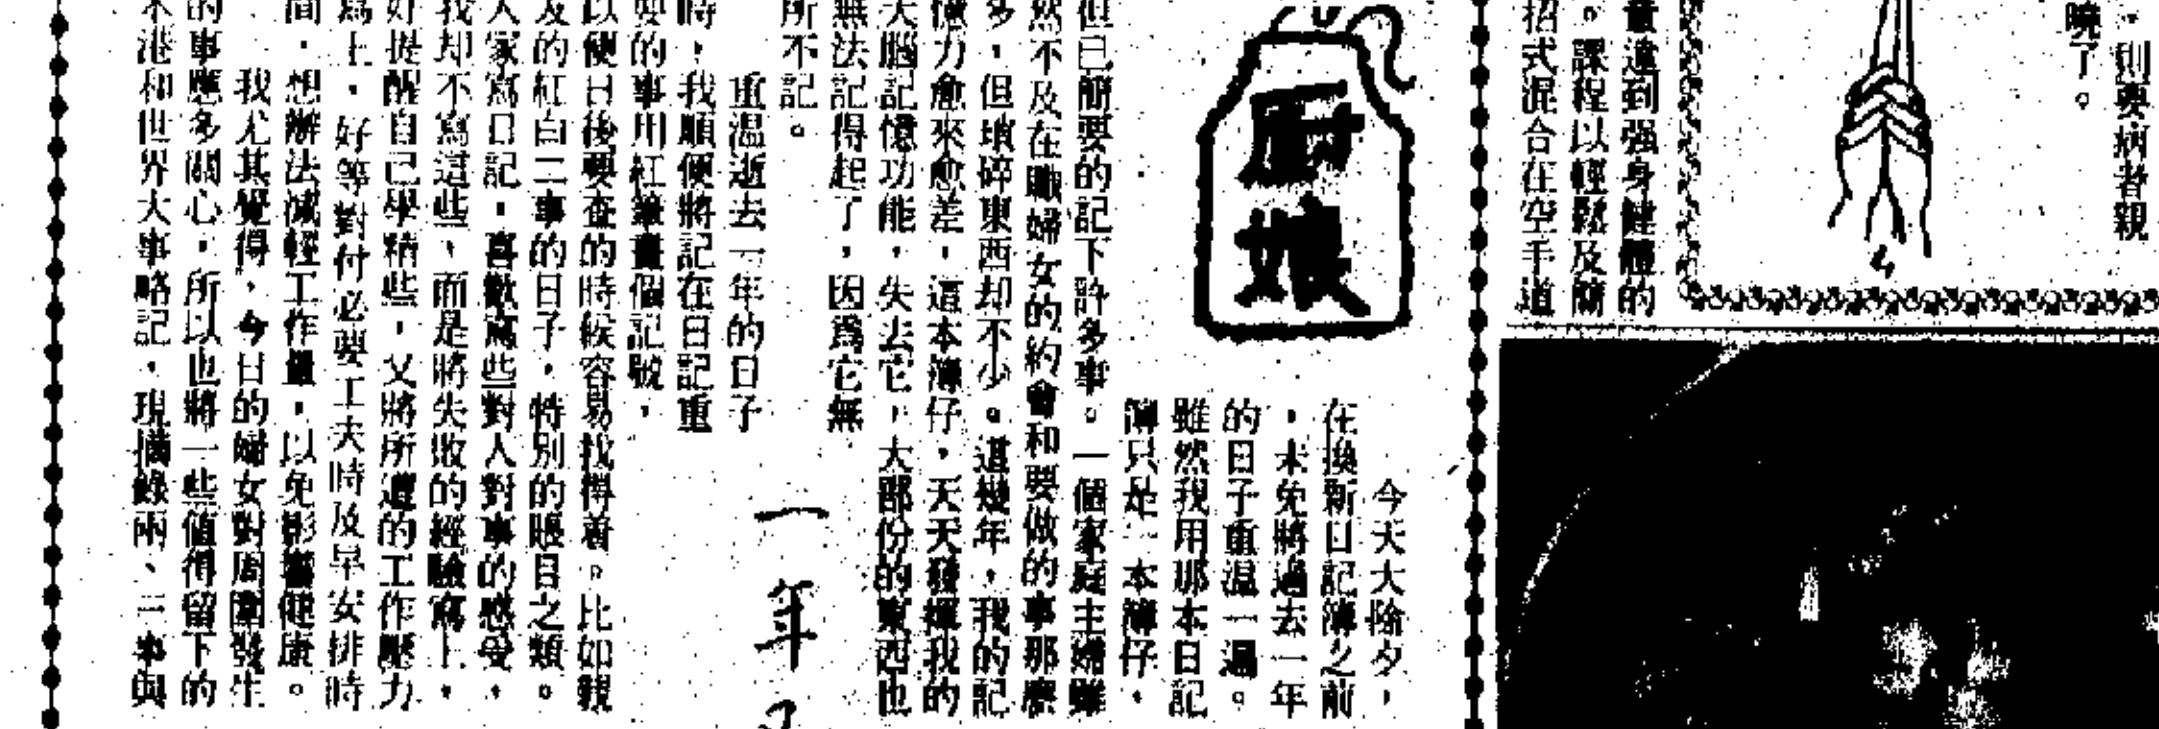 ，則要病者親
曉了。
量達到强身健體的
。課程以輕鬆及簡
招式混合在空手道
厨娘
今天大除夕，
在換新日記簿之前
，未免將過去一年
的日子重温一遍。
雖然我用那本日記
簿只是一本簿仔，
但已簡要的記下許多事。一個家庭主婦雖
然不及在職婦女的約會和要做的事那麽
多，但瑣碎東西却不少。這幾年，我的記
憶力愈來愈差，這本簿仔，天天發揮我的
大腦記憶功能，失去它，大部份的東西也
無法記得起了，因爲它無
所不記。
一年
重温逝去一年的日子
時，我順便將記在日記重
要的事用紅筆畫個記號，
以便日後要查的時候容易找得着。比如親
友的紅白二事的日子，特別的賬目之類。
人家寫日記，喜歡寫些對人對事的感受，
我却不寫這些，而是將失敗的經驗寫上，
好提醒自己學精些，又將所遭的工作壓力
寫上，好等對付必要工夫時及早安排時
間，想辦法减輕工作量，以免影響健康。
我尤其覺得，今日的婦女對周圍發生
的事應多關心，所以也將一些值得留下的
本港和世界大事略記，現摘錄兩、三事與